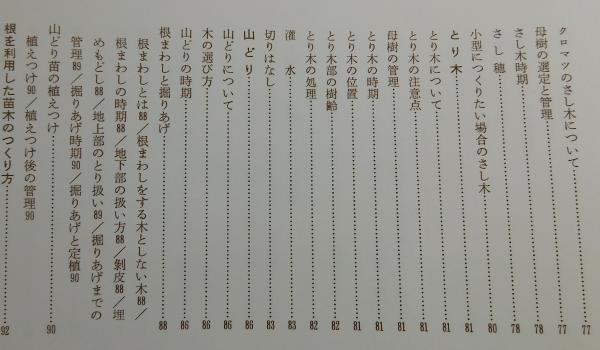 クロマツのさし木について……77
母樹の選定と管理……77
さし木時期……78
さし穂……78
小型につくりたい場合のさし木……80
とり木……81
とり木について……81
とり木の注意点……81
母樹の管理……81
とり木の時期……81
とり木の位置……81
とり木部の樹齢……82
とり木の処理……82
灌水……83
切りはなし……83
山どり……86
山どりについて……86
木の選び方……86
山どりの時期……86
根まわしと掘りあげ……88
根まわしとは88／根まわしをする木としない木88／
根まわしの時期88／地下部の扱い方88／剝皮88／埋
めもどし88／地上部のとり扱い89／掘りあげまでの
管理89／掘りあげ時期90／掘りあげと定植90
山どり苗の植えつけ……90
植えつけ90／植えつけ後の管理90
根を利用した苗木のつくり方……92